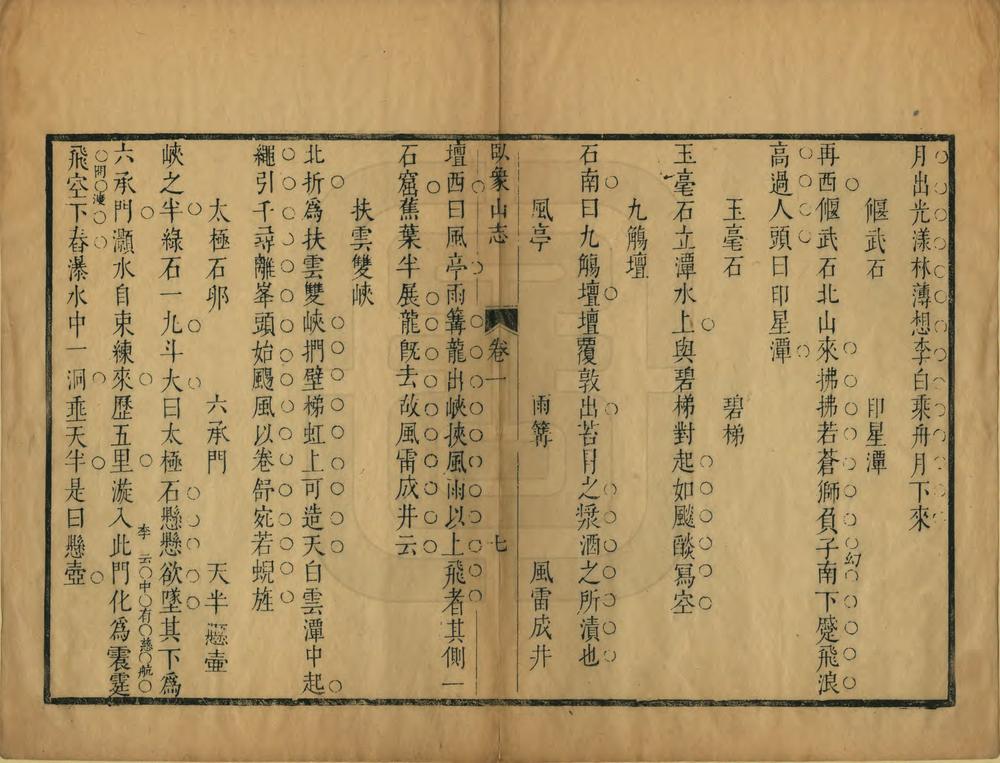 月出光漾林薄想李白乘舟月下來
偃武石　印星潭
再西偃武石北山來拂拂若蒼獅負子南下蹙飛浪
幻
高過人頭曰印星潭
玉毫石　碧梯
玉毫石立潭水上與碧梯對起如颷燄寫空
九觴壇
石南曰九觴壇壇覆敦出苔月之漿酒之所漬也
風亭　雨篝　風雷成井
臥象山志　卷一　七
壇西曰風亭雨篝龍出峽挾風雨以上飛者其側一
石窟蕉葉半展龍旣去故風雷成井云
扶雲雙峽
北折爲扶雲雙峽捫壁梯虹上可造天白雲潭中起
繩引千尋離峯頭始颺風以卷舒宛若蜺旌
太極石卵　六承門　天半懸壺
峽之半綠石一丸斗大曰太極石懸懸欲墜其下爲
六承門灝水自束練來歷五里漩入此門化爲震霆
李云中有慈航
飛空下舂瀑水中一洞垂天半是曰懸壺